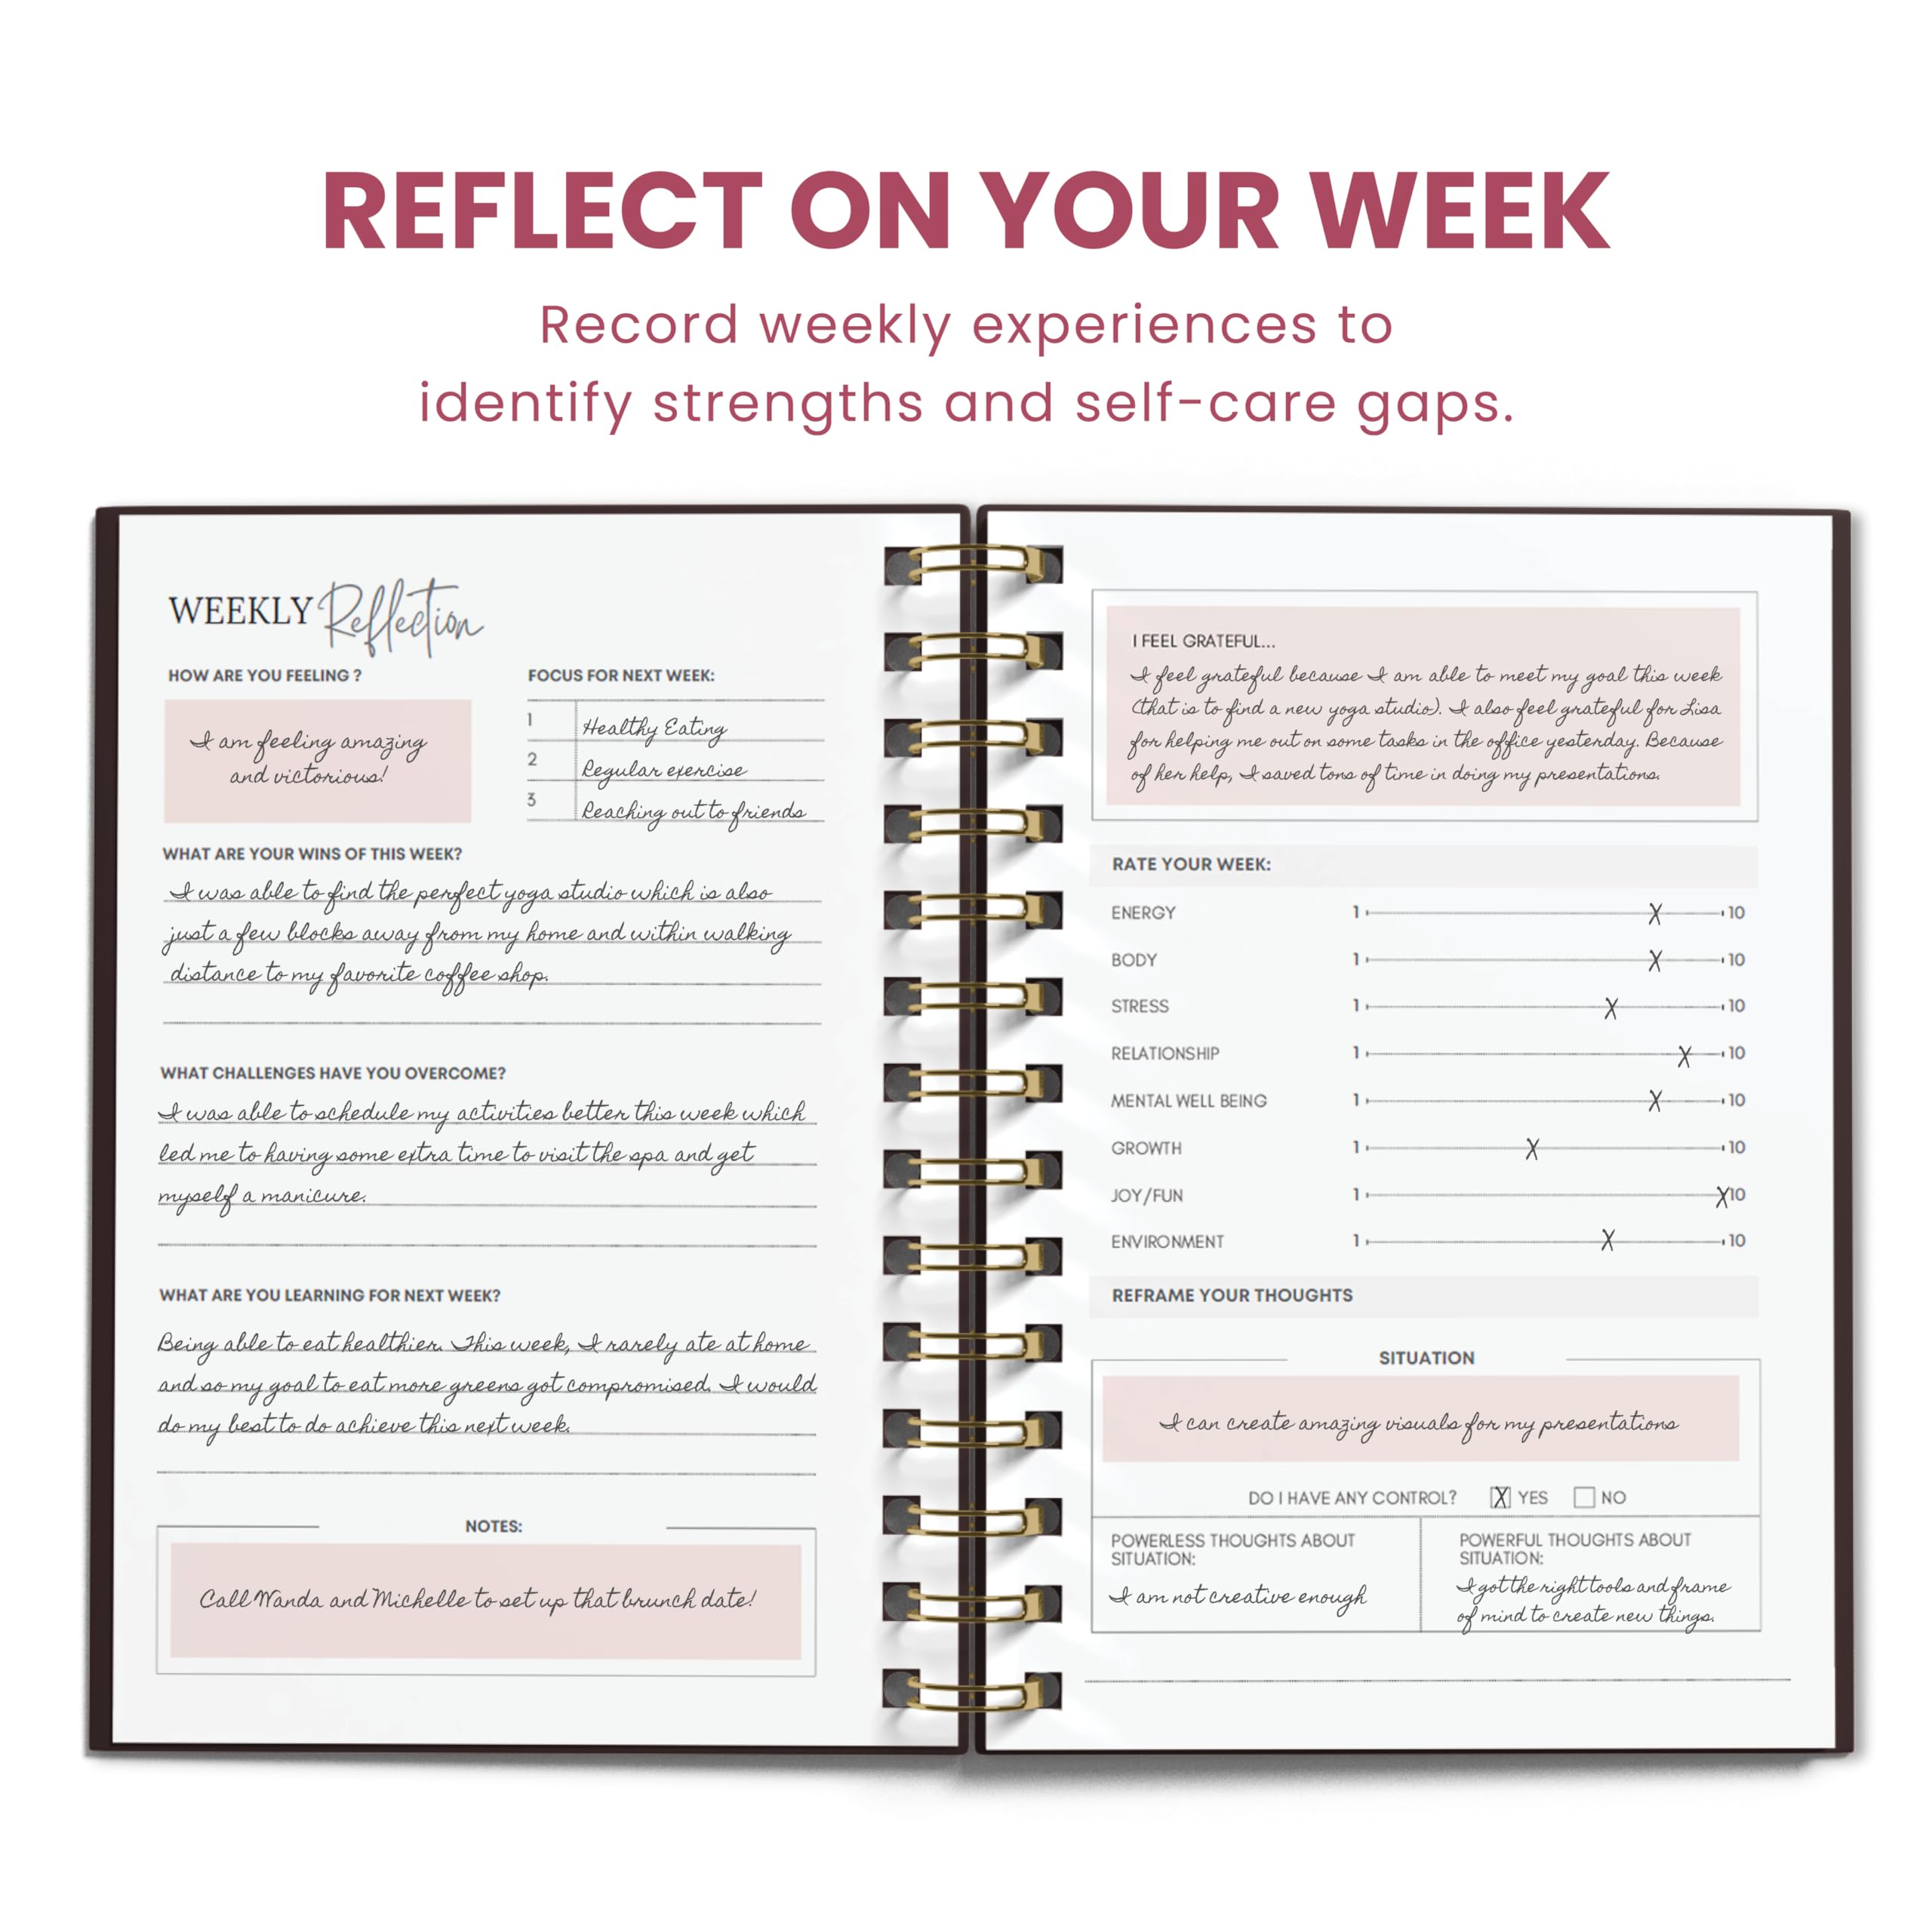 REFLECT ON YOUR WEEK
Record weekly experiences to
identify strengths and self-care gaps.
WEEKLY Reflection
HOW ARE YOU FEELING ?
I am feeling amazing
and victorious!
FOCUS FOR NEXT WEEK:
1 Healthy Eating
2 Regular exercise
3 Reaching out to friends
WHAT ARE YOUR WINS OF THIS WEEK?
I was able to find the perfect yoga studio which is also
just a few blocks away from my home and within walking
distance to my favorite coffee shop.
WHAT CHALLENGES HAVE YOU OVERCOME?
I was able to schedule my activities better this week which
led me to having some extra time to visit the spa and get
myself a manicure.
WHAT ARE YOU LEARNING FOR NEXT WEEK?
Being able to eat healthier. This week, I rarely ate at home
and so my goal to eat more greens got compromised. I would
do my best to do achieve this next week.
NOTES:
Call Wanda and Michelle to set up that brunch date!
I FEEL GRATEFUL...
I feel grateful because I am able to meet my goal this week
(that is to find a new yoga studio). I also feel grateful for Lisa
for helping me out on some tasks in the office yesterday. Because
of her help, I saved tons of time in doing my presentations.
RATE YOUR WEEK:
ENERGY 1 X 10
BODY 1 X 10
STRESS 1 X 10
RELATIONSHIP 1 X 10
MENTAL WELL BEING 1 X 10
GROWTH 1 X 10
JOY/FUN 1 X 10
ENVIRONMENT 1 X 10
REFRAME YOUR THOUGHTS
SITUATION
I can create amazing visuals for my presentations
DO I HAVE ANY CONTROL? X YES NO
POWERLESS THOUGHTS ABOUT
SITUATION:
I am not creative enough
POWERFUL THOUGHTS ABOUT
SITUATION:
I got the right tools and frame
of mind to create new things.